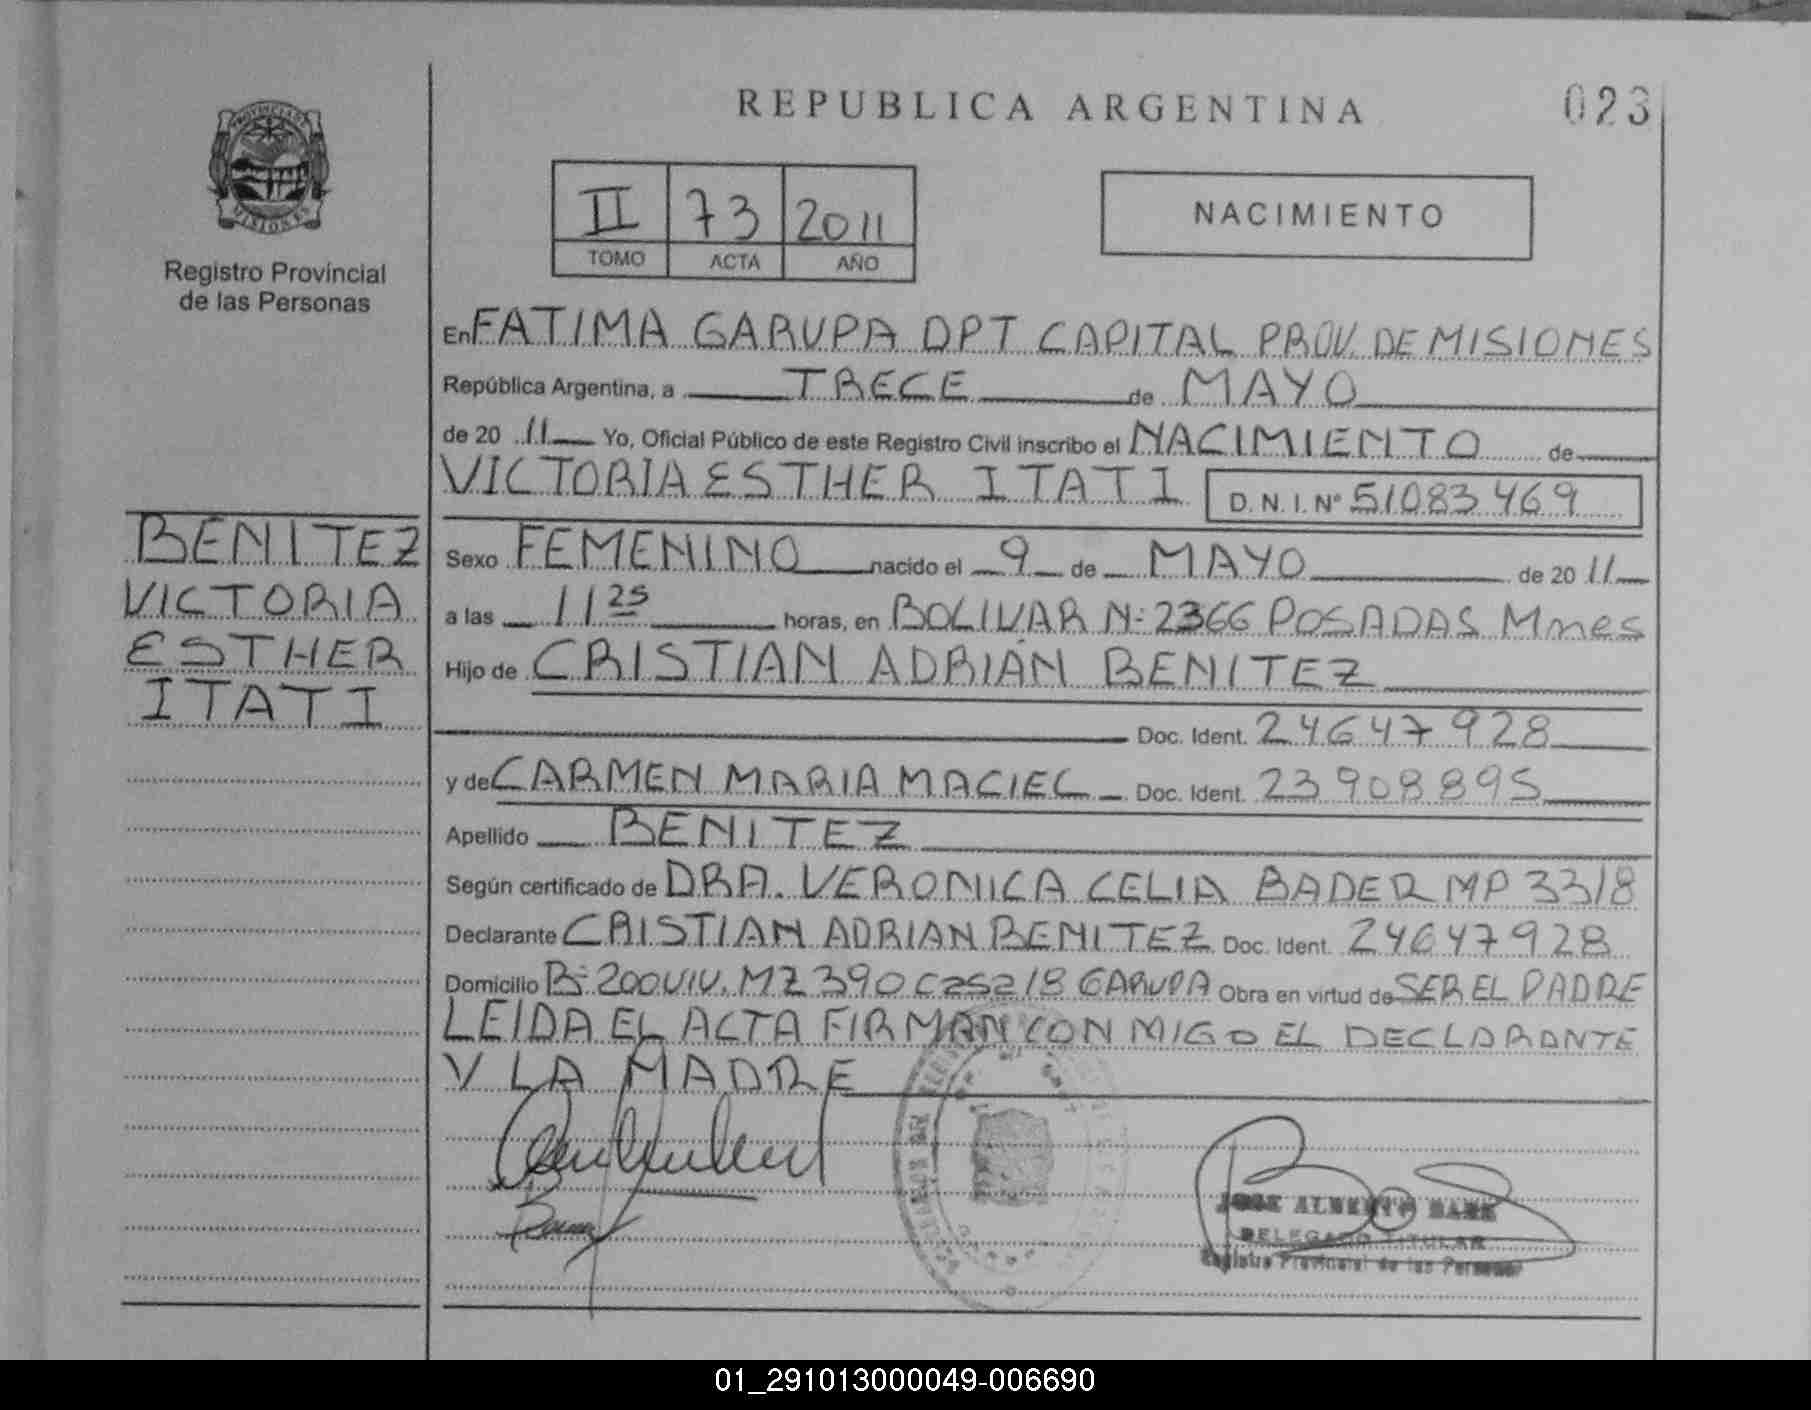 REPUBLICA ARGENTINA
023
PROVINCIA DE
MISIONES
Registro Provincial
de las Personas
II 73 2011
TOMO ACTA AÑO
NACIMIENTO
En FATIMA GARUPA DPT CAPITAL PROV. DE MISIONES
República Argentina, a TRECE de MAYO
de 20 11 Yo, Oficial Público de este Registro Civil inscribo el NACIMIENTO de
VICTORIA ESTHER ITATI D.N.I. Nº 51083469
BENITEZ
VICTORIA
ESTHER
ITATI
Sexo FEMENINO nacido el 9 de MAYO de 20 11
a las 11 25 horas, en BOLIVAR Nº 2366 POSADAS Mnes
Hijo de CRISTIAN ADRIAN BENITEZ
Doc. Ident. 24647928
y de CARMEN MARIA MACIEL Doc. Ident. 23908895
Apellido BENITEZ
Según certificado de DRA. VERONICA CELIA BADER MP 3318
Declarante CRISTIAN ADRIAN BENITEZ Doc. Ident. 24647928
Domicilio Bº 200 VIV. MZ 390 C252/8 GARUPA Obra en virtud de SER EL PADRE
LEIDA EL ACTA FIRMAN CON MIGO EL DECLARANTE
Y LA MADRE
JOSE ALBERTO
DELEGADO TITULAR
Registro Provincial de las Personas
01_291013000049-006690